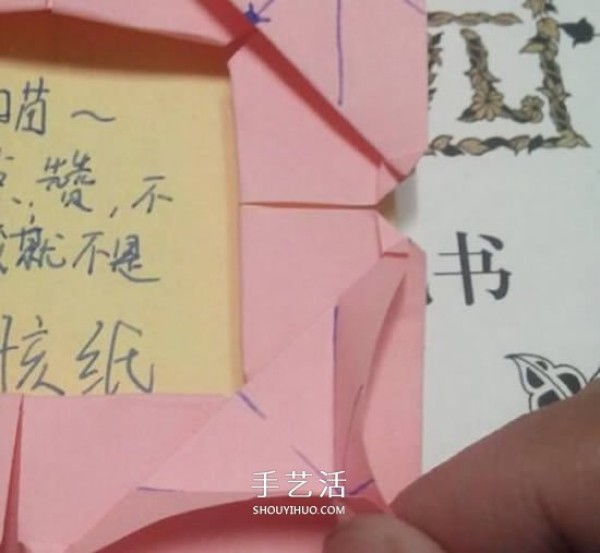 喵～
点赞，不
就不是
孩纸
书
手艺活
SHOUYIHUO.COM